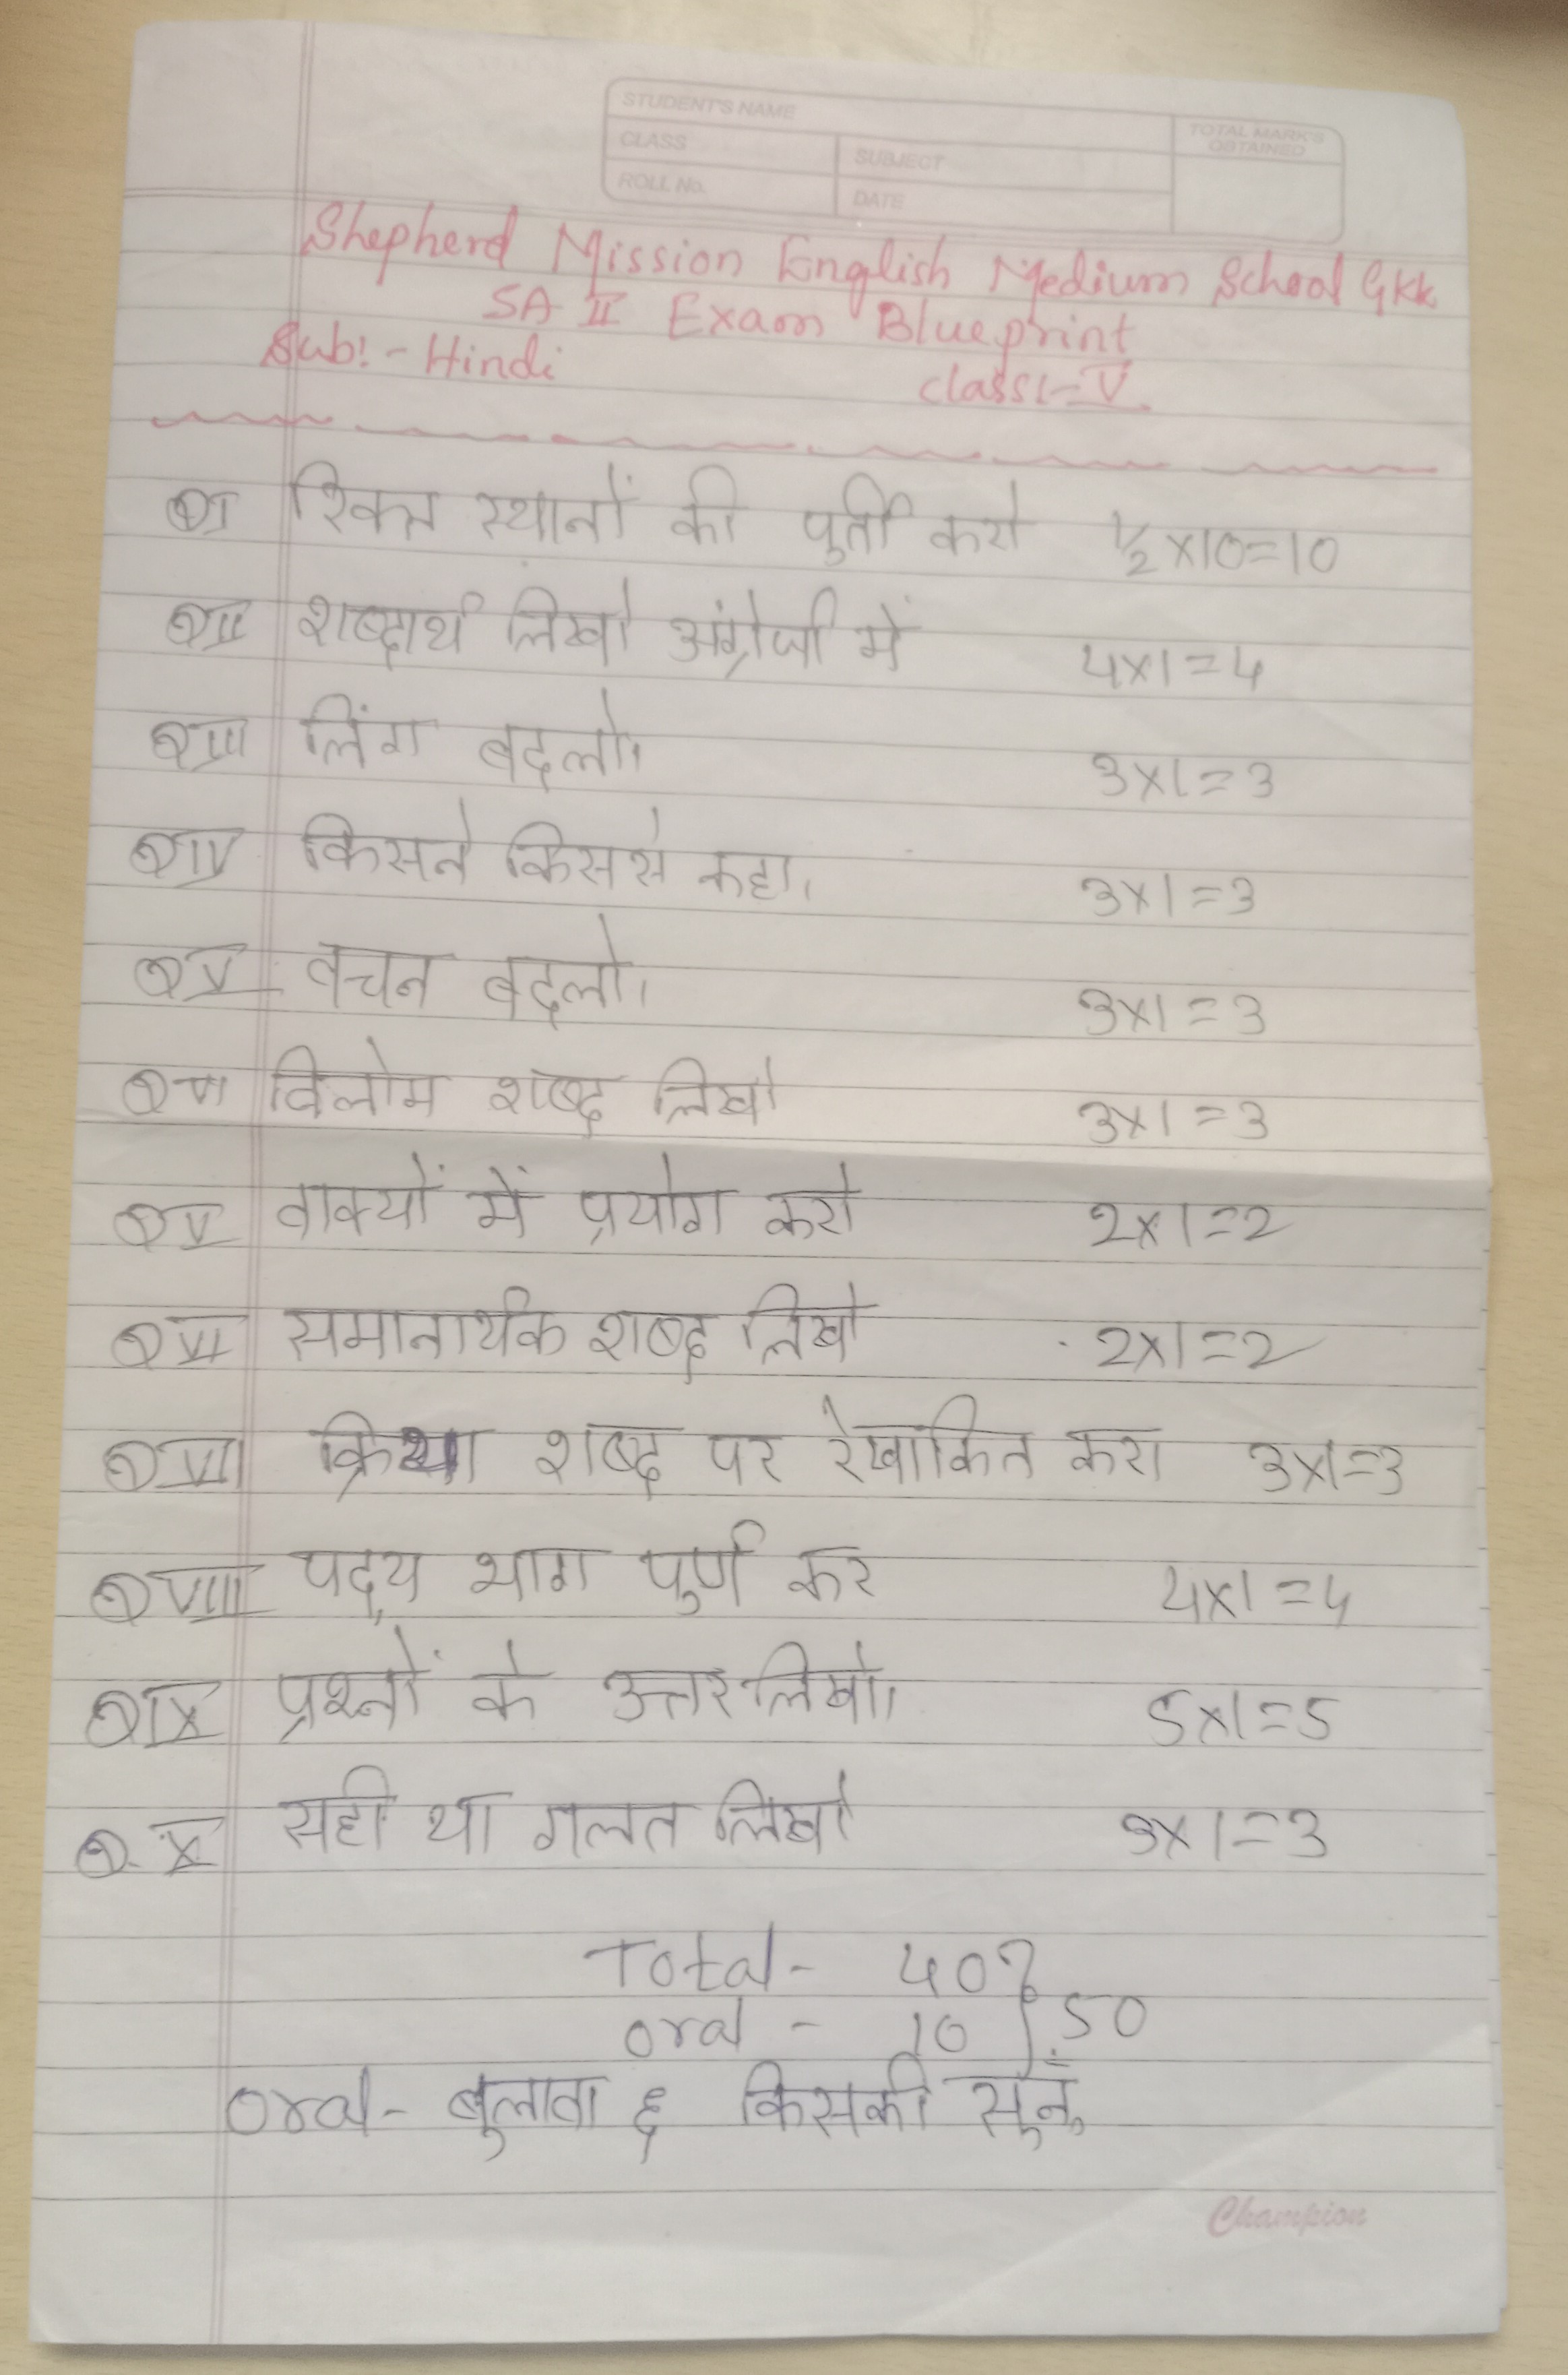 STUDENT'S NAME
TOTAL MARK'S OBTAINED
CLASS
SUBJECT
ROLL No.
DATE
Shepherd Mission English Medium School GKK
SA II Exam Blueprint
Sub:- Hindi class:- V
Q I रिक्त स्थानों की पुर्ती करो ½ x10=10
Q II शब्दार्थ लिखो अंग्रेजी में 4x1=4
Q III लिंग बदलो। 3x1=3
Q IV किसने किससे कहा। 3x1=3
Q V वचन बदलो। 3x1=3
Q VI विलोम शब्द लिखो 3x1=3
Q V वाक्यों में प्रयोग करो 2x1=2
Q VI समानार्थक शब्द लिखो 2x1=2
Q VII क्रिया शब्द पर रेखाकित करो 3x1=3
Q VIII पद्य भाग पुर्ण कर 4x1=4
Q IX प्रश्नों के उत्तर लिखो। 5x1=5
Q. X सही या गलत लिखो 3x1=3
Total- 40
oral - 10 } 50
oral- बुलावा & किसकी सुनूँ
Champion